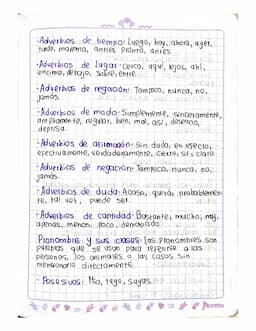 ·Adverbios de tiempo: Luego, hoy, ahora, ayer,
tarde, mañana, antes, pronto, antes.
·Adverbios de lugar: Cerca, aquí, lejos, ahí,
encima, debajo, sobre, entre.
·Adverbios de negación: Tampoco, nunca, no,
jamás.
·Adverbios de modo: Simplemente, sinceramente,
ampliamente, regular, bien, mal, así, despacio,
deprisa.
·Adverbios de afirmación: Sin duda, en efecto,
efectivamente, verdaderamente, cierto, sí, claro.
·Adverbios de negación: Tampoco, nunca, no,
jamás.
·Adverbios de duda: Acaso, quizá, probablemen-
te, tal vez, puede ser.
·Adverbios de cantidad: Bastante, mucho, muy,
apenas, menos, poco, demasiado.
Pronombre y sus clases: Los pronombres son
palabras que se usan para referirse a las
personas, los animales o las cosas sin
mencionarlo directamente.
·Posesivos: Mío, tuyo, suyas.